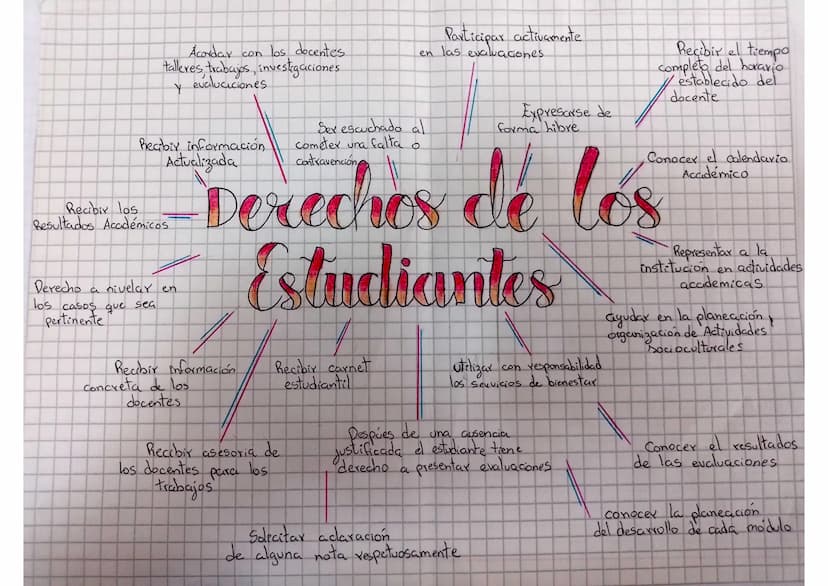 Derechos de los
Estudiantes
Acordar con los docentes
talleres, trabajos, investigaciones
y evaluaciones
Participar activamente
en las evaluaciones
Recibir el tiempo
completo del horario
establecido del
docente
Recibir información
Actualizada
Ser escuchado al
cometer una falta o
contravención
Expresarse de
forma libre
Conocer el calendario
Académico
Recibir los
Resultados Académicos
Representar a la
institución en actividades
academicas
Derecho a nivelar en
los casos que sea
pertinente
ayudar en la planeación,
organización de Actividades
Socioculturales
Recibir información
concreta de los
docentes
Recibir carnet
estudiantil
utilizar con responsabilidad
los servicios de bienestar
Recibir asesoria de
los docentes para los
trabajos
Despúes de una ausencia
justificada el estudiante tiene
derecho a presentar evaluaciones
Conocer el resultados
de las evaluaciones
Solicitar aclaración
de alguna nota respetuosamente
conocer la planeación
del desarrollo de cada módulo